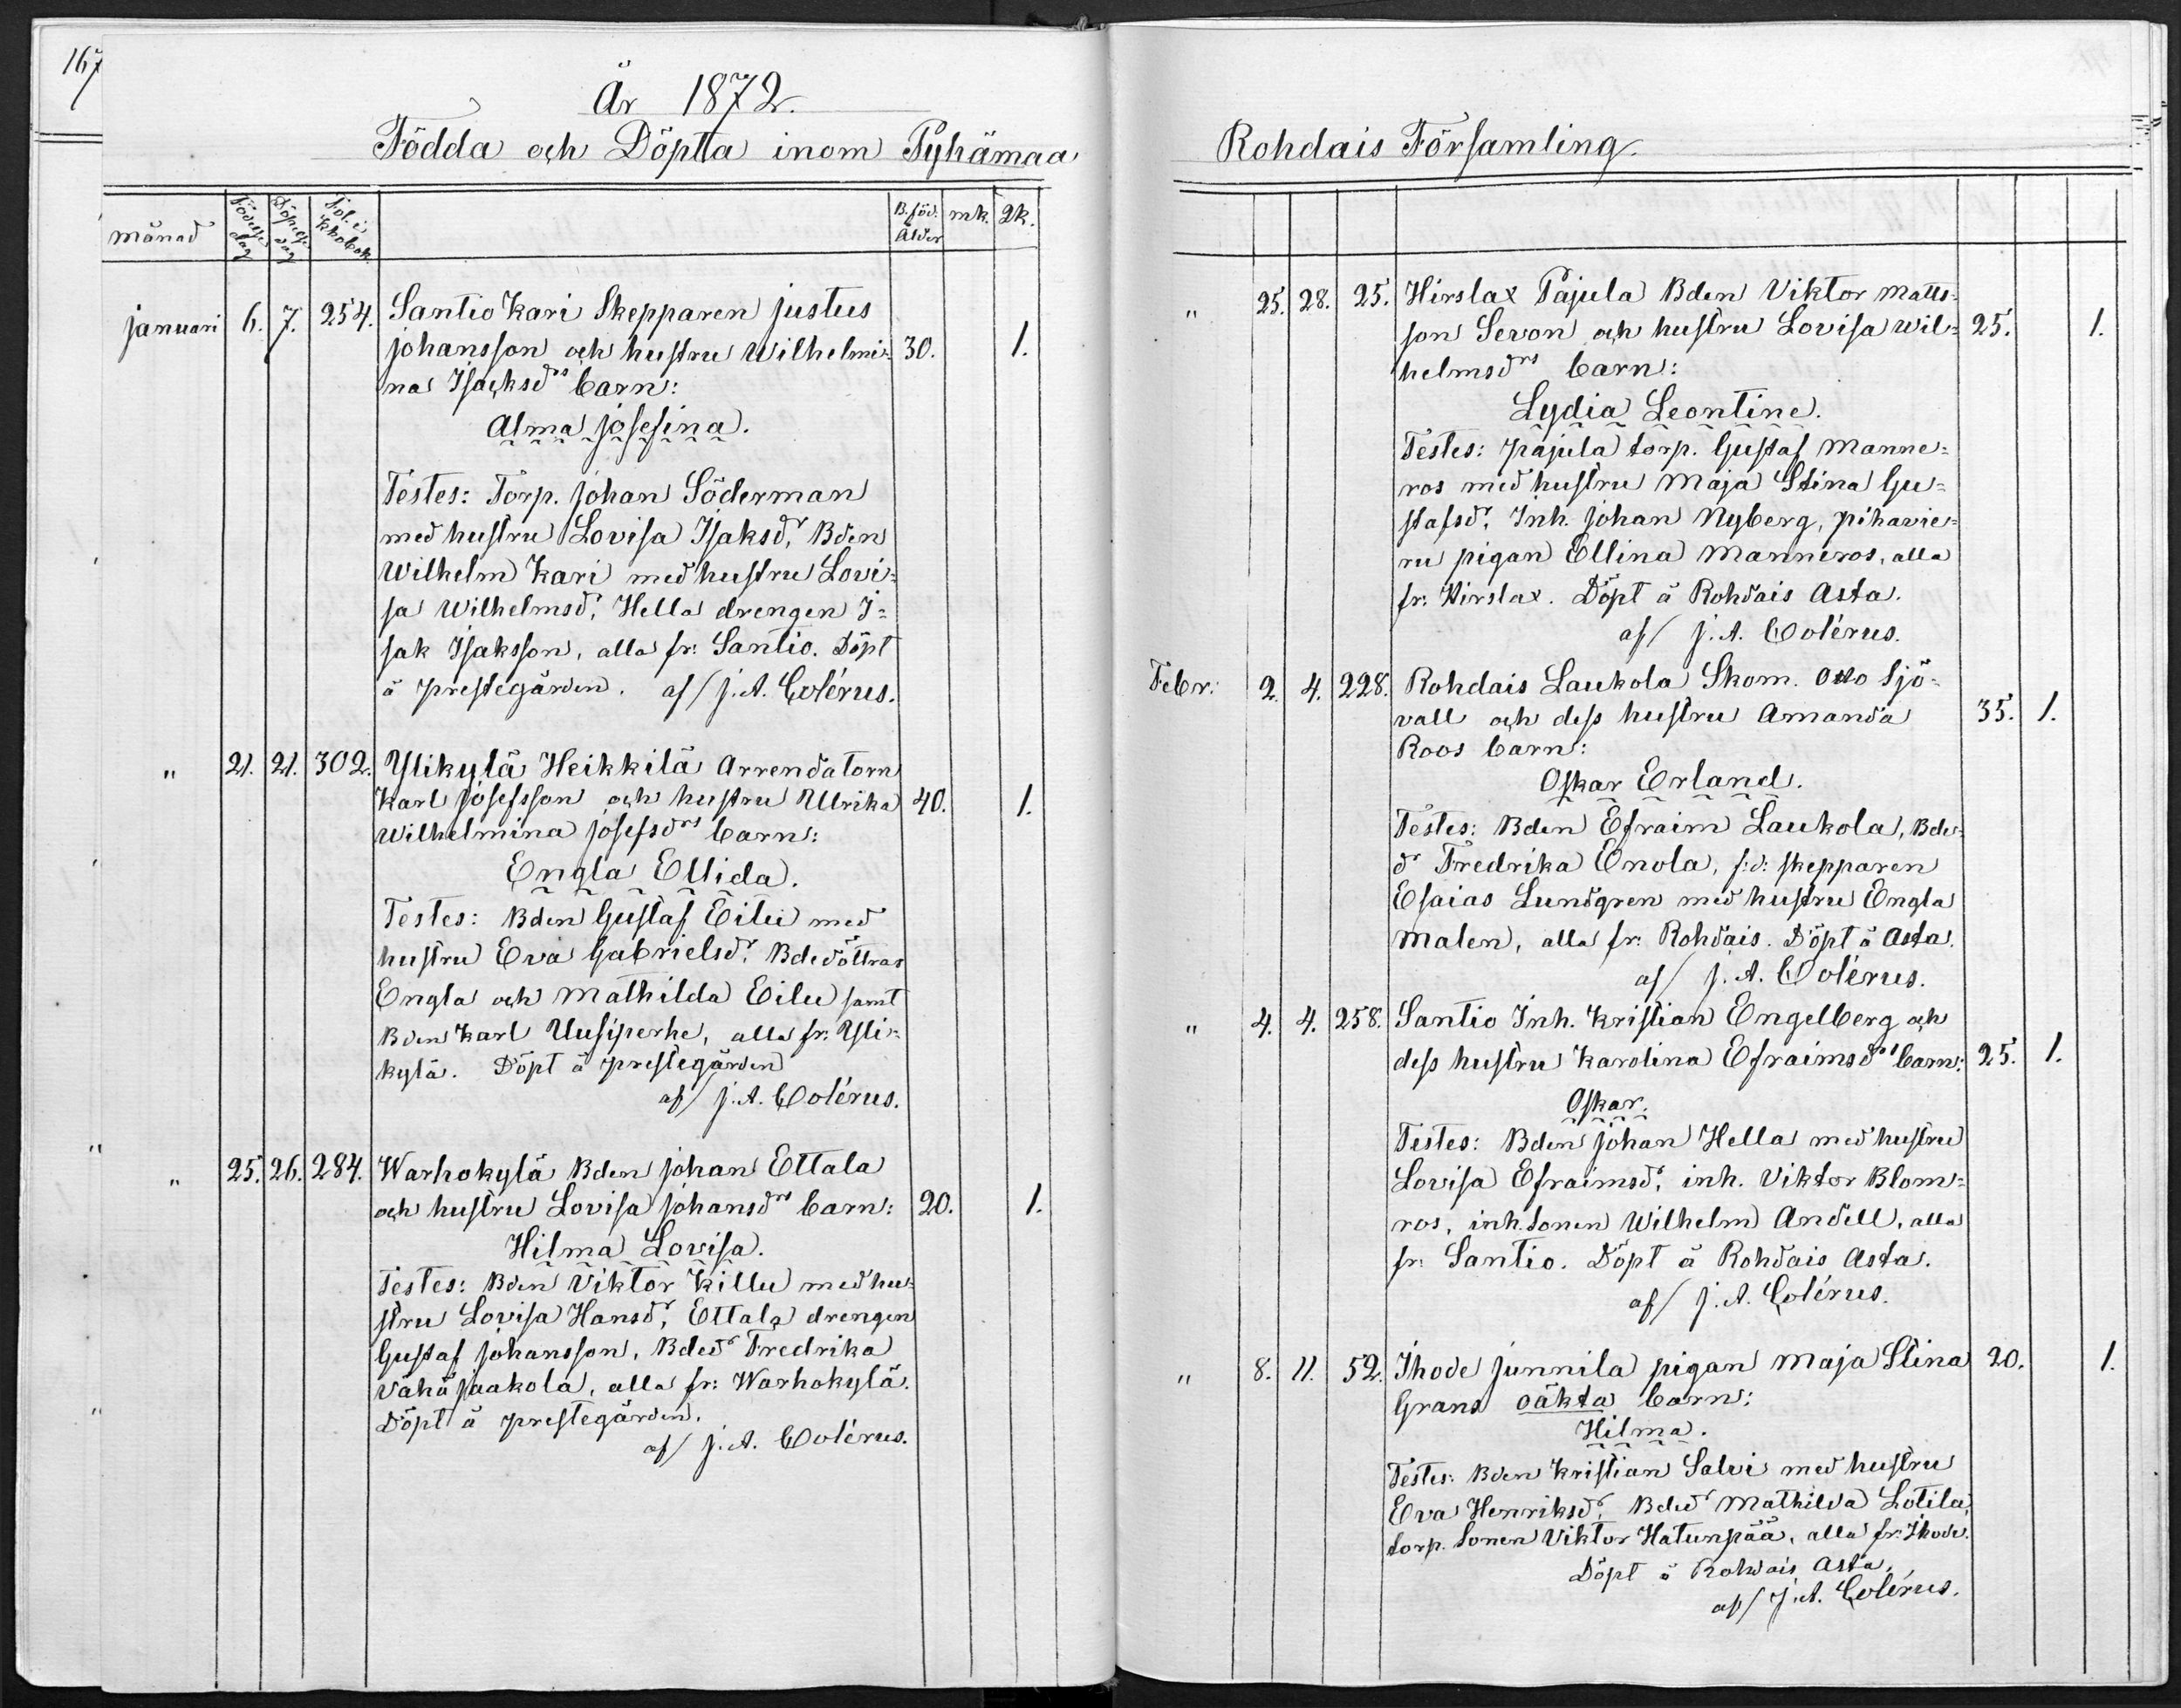 167
År 1872.
Födda och Döpta inom Pyhämaa
månad
Födelse dag
Döpelse dag
Fol. i Kkobok.
B. föd. Ålder
mk.
qk.
januari 6. 7. 254. Santio Kari Skepparen justus
johansson och hustru Wilhelmi= 30. 1.
na Isachsdrs barn:
Alma josefina.
Testes: Torp. johan Söderman
med hustru Lovisa Isaksdr, Bden
Wilhelm Kari med hustru Lovi=
sa Wilhelmsdr, Hella drengen I=
sak Isaksson, alla fr: Santio. Döpt
å prestegården. af/ J. A. Colérus.
" 21. 21. 302. Ylikylä Heikkilä Arrendatorn
Karl josefsson och hustru Ulrika 40. 1.
Wilhelmina josefsdrs barn:
Engla Ellida.
Testes: Bden Gustaf Eilu med
hustru Eva Gabrielsdr, Bdedöttrar
Engla och Mathilda Eilu samt
Bden Karl Uusiperhe, alla fr: Yli=
kylä. Döpt å prestegården
af/ J. A. Colérus.
" 25. 26. 284. Warhokylä Bden johan Ettala
och hustru Lovisa johansdrs barn: 20. 1.
Hilma Lovisa.
Testes: Bden Viktor Killu med hu=
stru Lovisa Hansdr, Ettala drengen
Gustaf johansson, Bdedr Fredrika
Vähäjaakola, alla fr: Warhokylä.
Döpt å prestegården.
af/ J. A. Colérus.
Rohdais Församling.
" 25. 28. 25. Hirslax Pajula Bden Viktor Matts=
son Servon och hustru Lovisa Wil= 25. 1.
helmsdrs barn:
Lydia Leontine.
Testes: Pajula torp. Gustaf Manne=
ros med hustru Maja Stina Gu=
stafsdr, Inh. johan Nyberg, pihavie=
ru pigan Ellina Manneros, alla
fr: Hirslax. Döpt å Rohdais Asta.
af/ J. A. Colérus.
Febr: 2. 4. 228. Rohdais Laukola Skom. Otto Sjö=
vall och dess hustru Amanda 35. 1.
Roos barn:
Oskar Erland.
Testes: Bden Efraim Laukola, Bde=
dr Fredrika Enola, f:d: skepparen
Esaias Lundgren med hustru Engla
Malen, alla fr: Rohdais. Döpt å Asta.
af/ J. A. Colérus.
" 4. 4. 258. Santio Inh. Kristian Engelberg och
dess hustru Karolina Efraimsdrs barn: 25. 1.
Oskar.
Testes: Bden johan Hella med hustru
Lovisa Efraimsdr, inh. Viktor Blom=
ros, inh. sonen Wilhelm Andell, alla
fr: Santio. Döpt å Rohdais Asta.
af/ J. A. Colérus.
" 8. 11. 52. Ihode junnila pigan Maja Stina 20. 1.
Grans oäkta barn:
Hilma.
Testes: Bden Kristian Salvi med hustru
Eva Henriksdr, Bdedr Mathilda Lotila,
torp. sonen Viktor Hatunpää, alla fr: Ihode.
Döpt å Rohdais Asta.
af/ J. A. Colérus.